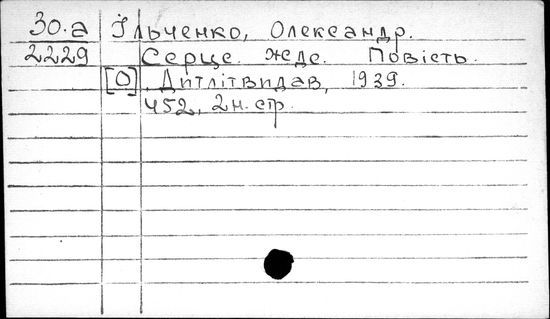 30.а Ільченко, Олександр.
2229 Серце жде. Повість.
[О] Дитлітвидав, 1939.
452, 2н. стр.